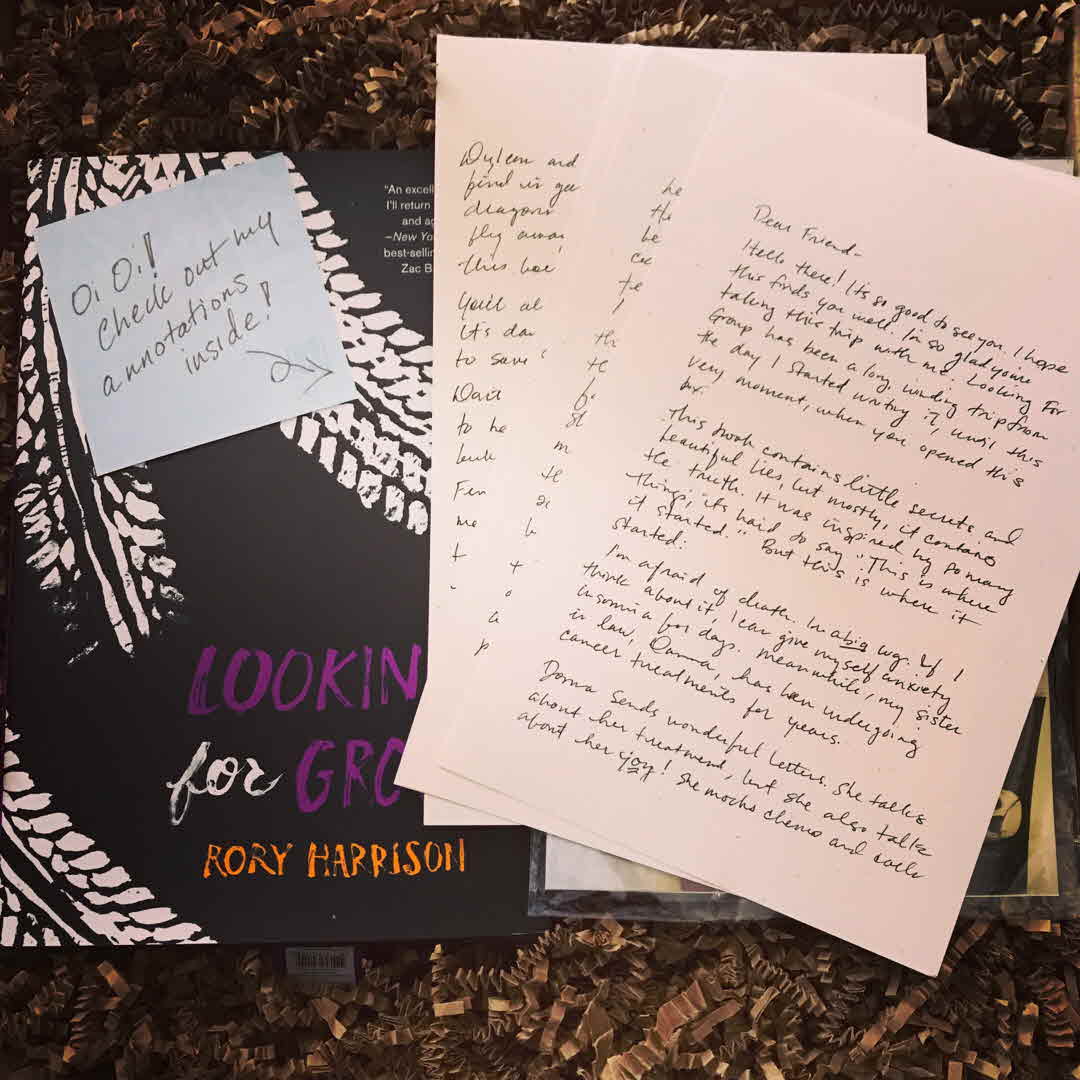 Oi Oi!
Check out my
annotations
inside!
"An excell
I'll return
and ag
–New Yo
best-sellin
Zac B
LOOKIN
for GRO
RORY HARRISON
Dylan and
find
dragons
fly away
this
You'll al
It's
to save
to he
Fen
me
he
th
be
th
te
m
Dear Friend-
Hello there! It's so good to see you. I hope
this finds you well. I'm so glad you're
taking this trip with me. Looking For
Group has been a long, winding trip from
the day I started writing it, until this
very moment, when you opened this
box.
This book contains little secrets and
beautiful lies, but mostly, it contains
the truth. It was inspired by so many
things, it's hard to say, "This is where
it started." But this is where it
started:
I'm afraid of death. In a big way. If I
think about it, I can give myself anxiety
insomnia for days. Meanwhile, my sister
in law, Donna, has been undergoing
cancer treatments for years.
Donna sends wonderful letters. She talks
about her treatment, but she also talks
about her joy! She mocks chemo and